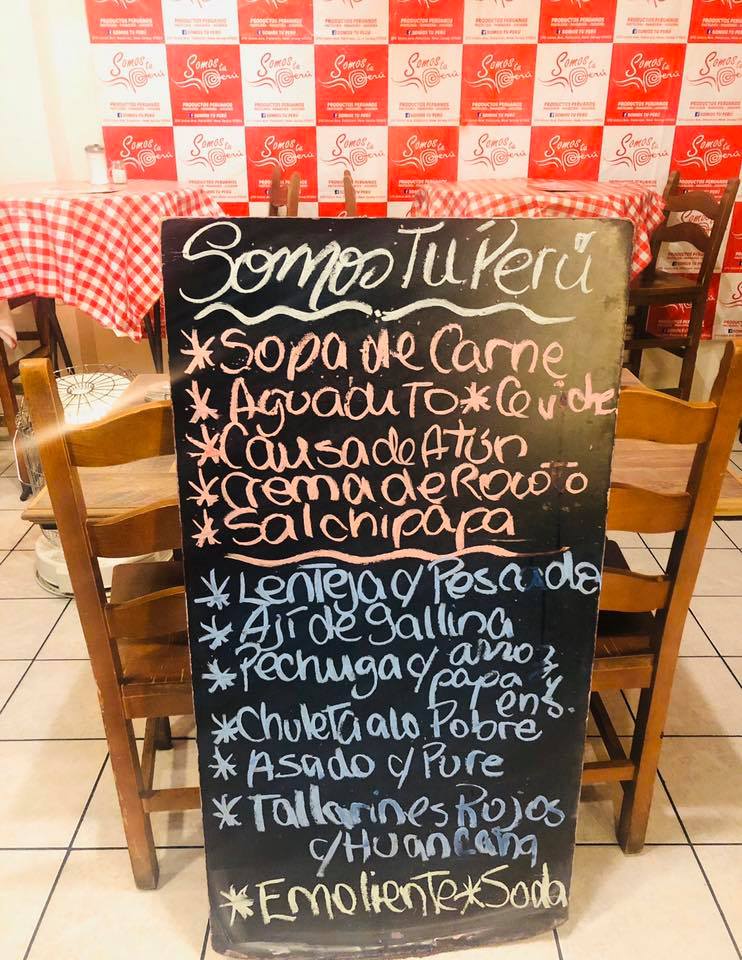 Somos Tu Perú
*Sopa de Carne
*Aguadito *Ceviche
*Causa de Atún
*Crema de Rocoto
*Salchipapa
*Lenteja c/ Pescado
*Ají de gallina
*Pechuga c/ arroz
papa
ens.
*Chuleta a lo Pobre
*Asado c/ Pure
*Tallarines Rojos
c/ Huancaina
*Emoliente *Soda
Somos tu Perú
PRODUCTOS PERUANOS
SOMOS TU PERÚ